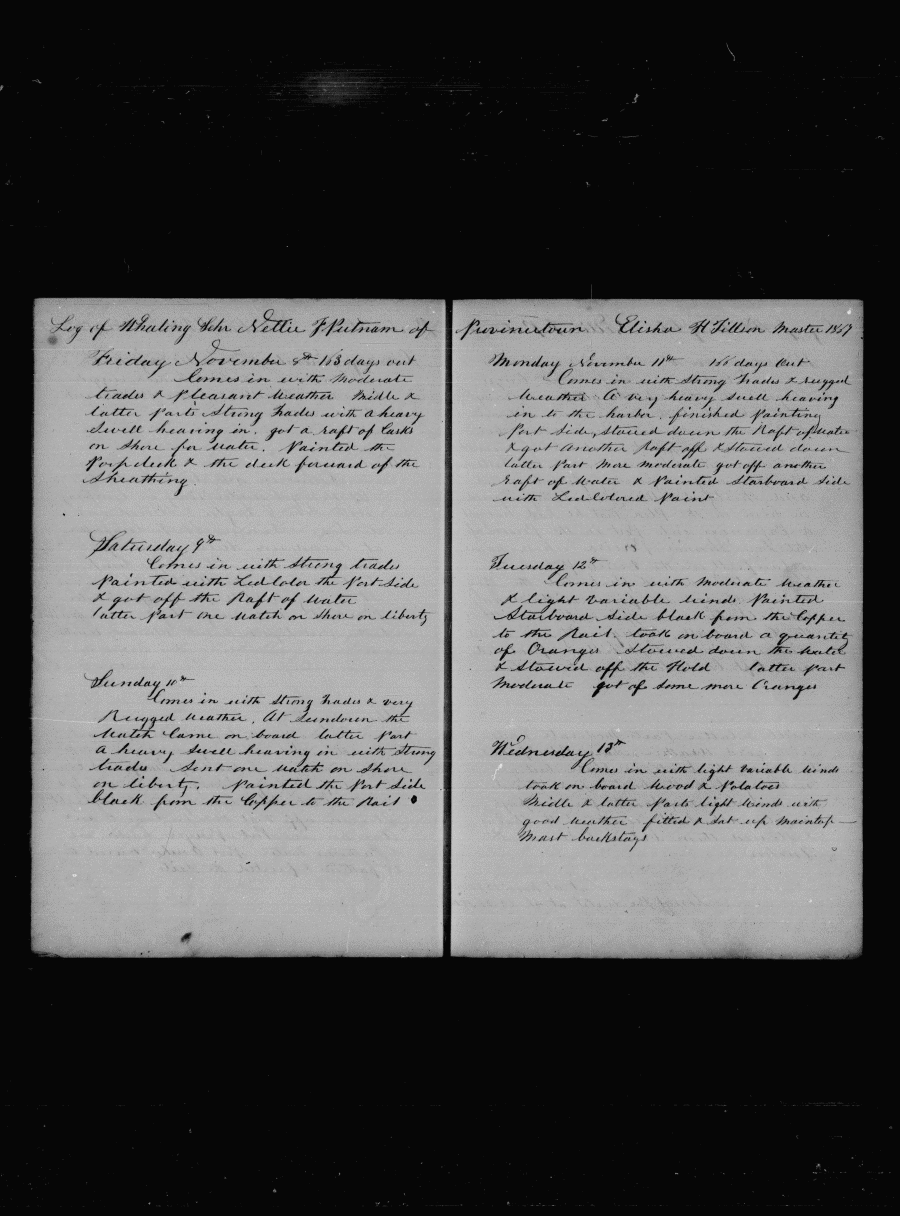 Log of Whaling Schr Nettie F Putnam of
Friday November 8th 163 days out
Comes in with moderate
trades & Pleasant Weather Midle &
latter Parts Strong trades with a heavy
Swell heaving in. got a raft of Casks
on Shore for water. Painted the
Poopdeck & the deck forward of the
Sheathing
Saturday 9th
Comes in with Strong trades
Painted with Led Color the Port Side
& got off the Raft of water
latter Part one watch on Shore on liberty
Sunday 10th
Comes in with Strong trades & very
Rugged weather. At Sundown the
Watch Came on board latter Part
a heavy Swell heaving in with Strong
trades Sent one watch on Shore
on liberty. Painted the Port Side
black from the Copper to the Rail
Provincetown Elisha H Tillson Master 1867
Monday November 11th 166 days Out
Comes in with Strong trades & rugged
Weather A very heavy swell heaving
in to the harbor. finished Painting
Port Side, stowed down the Raft of water
& got another Raft off & Stowed down
latter Part more moderate got off another
raft of water & Painted Starboard Side
with Led Colored Paint
Tuesday 12th
Comes in with moderate weather
& light variable winds Painted
Starboard Side black from the Copper
to the Rail. took on board a quantity
of Oranges Stowed down the water
& Stowed off the Hold latter Part
moderate got of some more Oranges
Wednesday 13th
Comes in with light variable winds
took on board Wood & Potatoes
Midle & latter Parts light winds with
good weather fitted & Sat up maintop—
Mast backstays